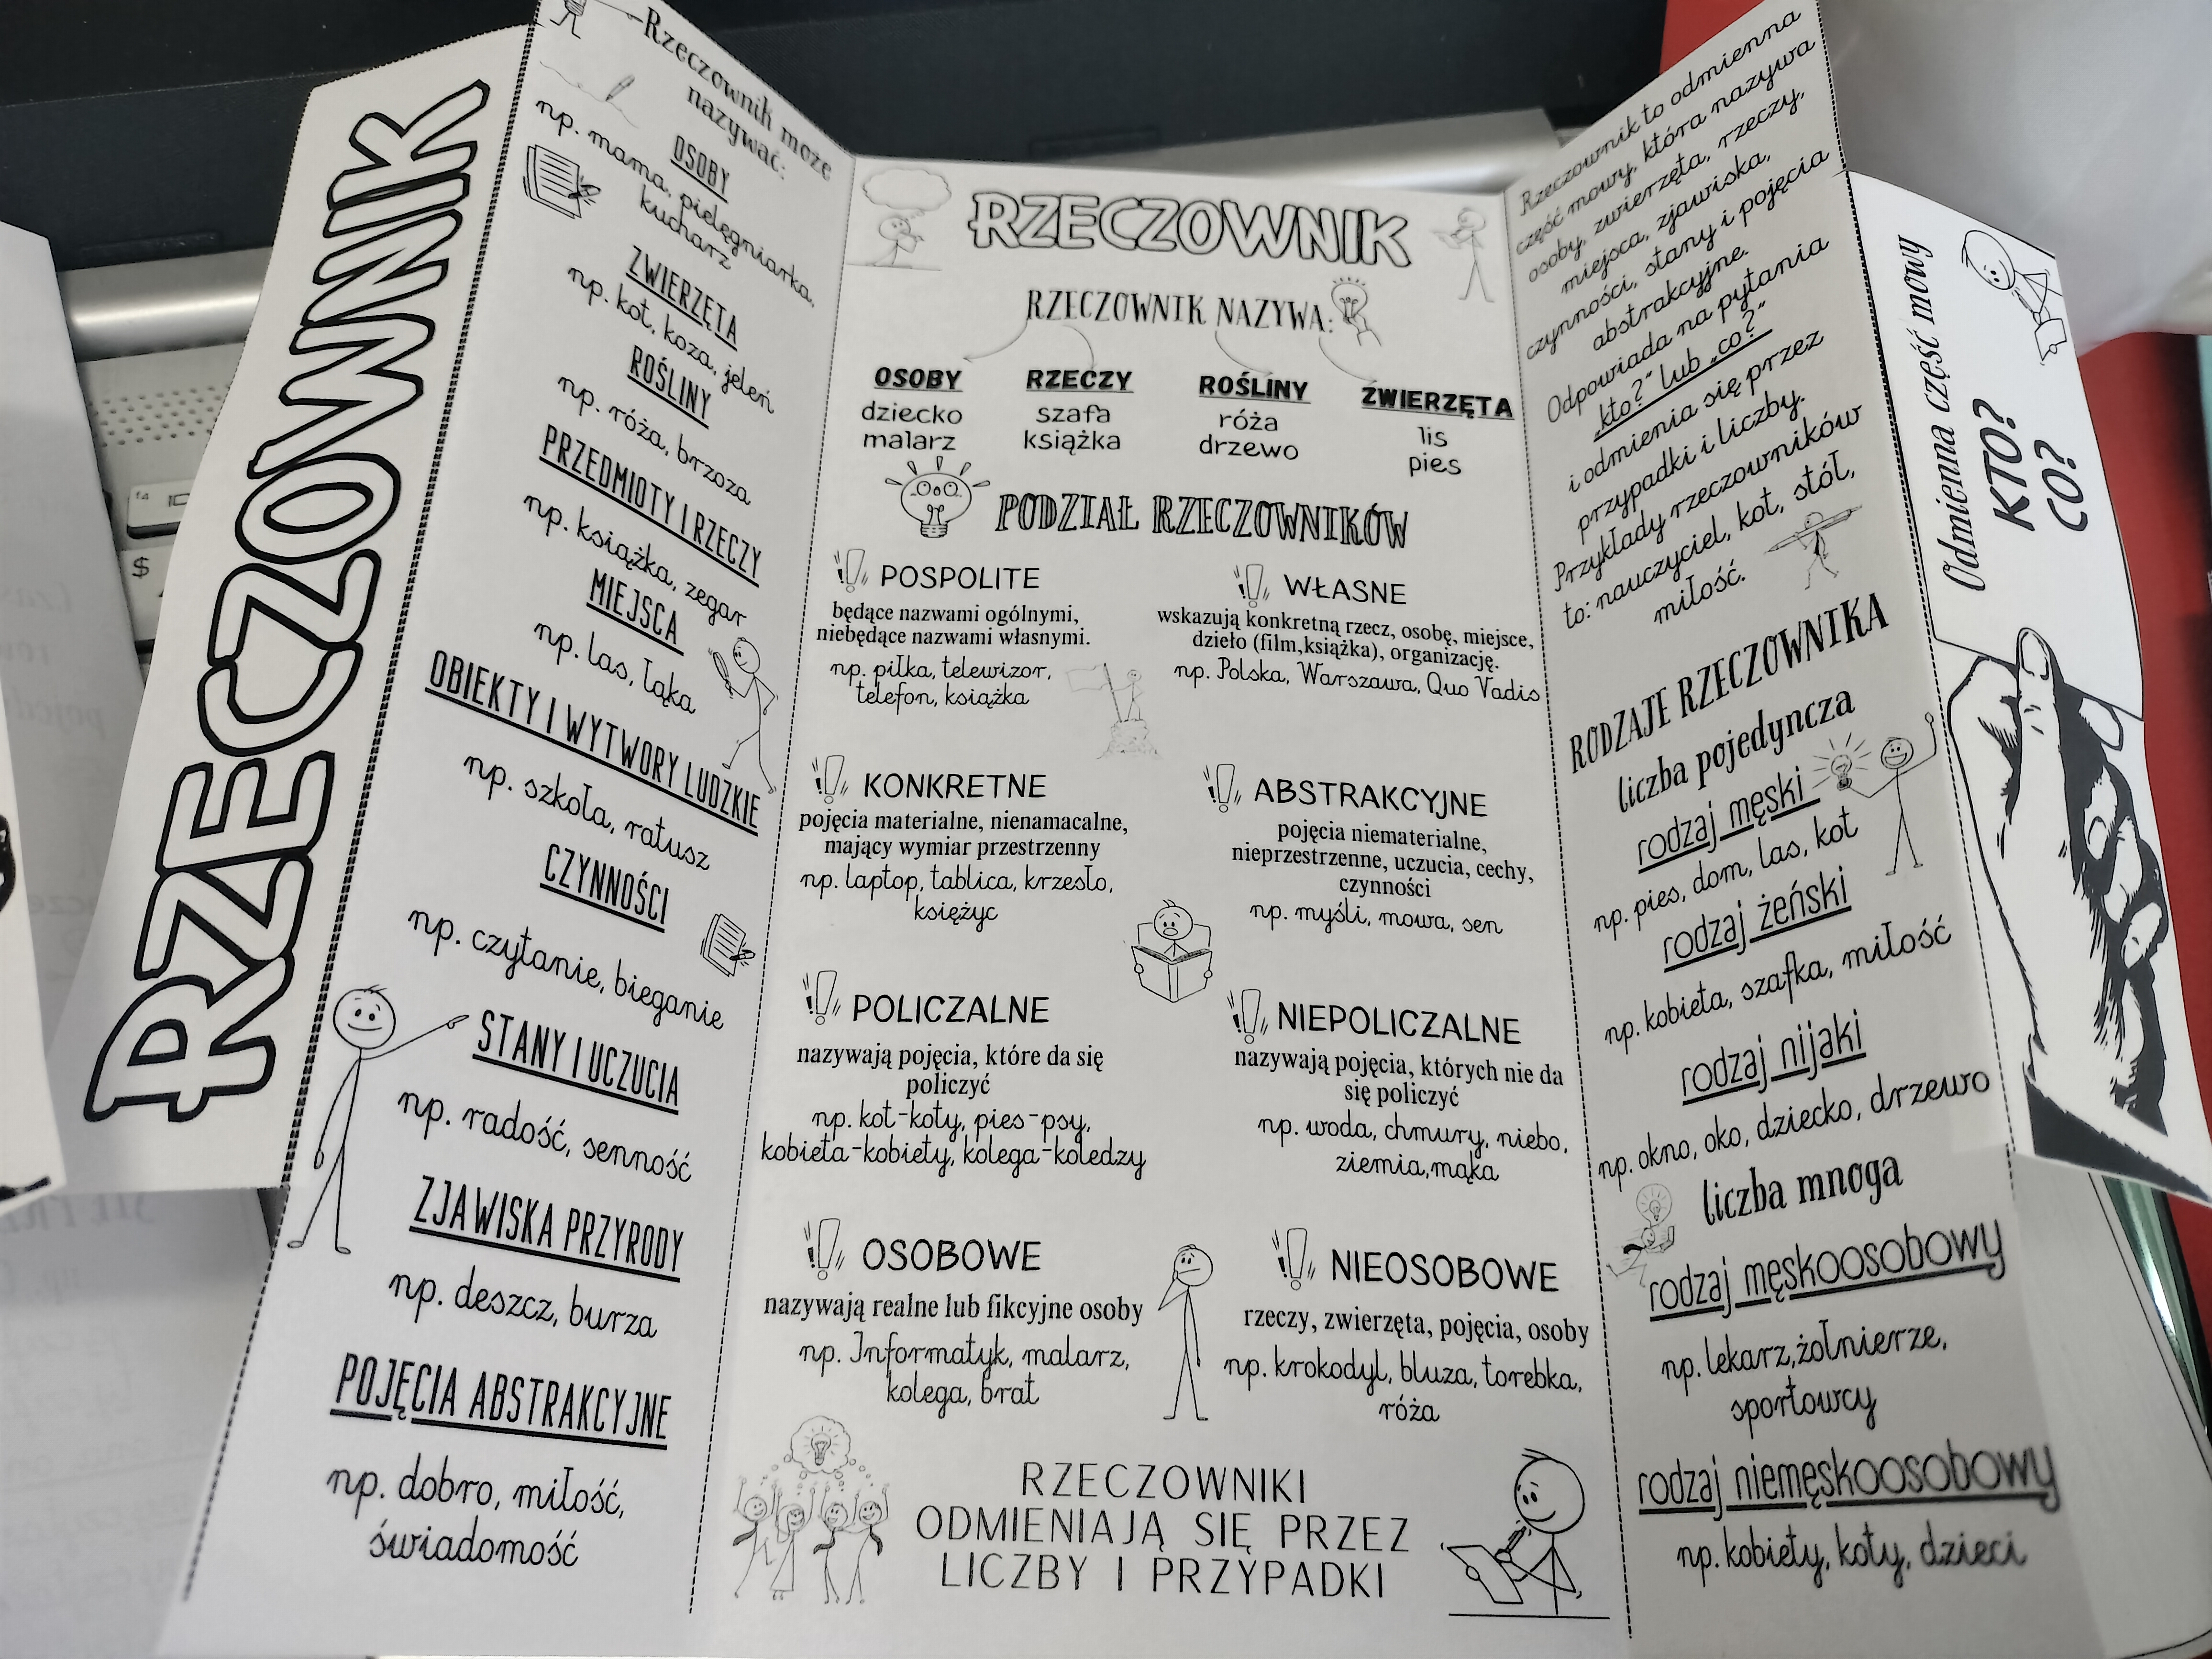 RZECZOWNIK
Rzeczownik może
nazywać:
OSOBY
np. mama, pielęgniarka,
kucharz
ZWIERZĘTA
np. kot, koza, jeleń
ROŚLINY
np. róża, brzoza
PRZEDMIOTY I RZECZY
np. książka, zegar
MIEJSCA
np. las, łąka
OBIEKTY I WYTWORY LUDZKIE
np. szkoła, ratusz
CZYNNOŚCI
np. czytanie, bieganie
STANY I UCZUCIA
np. radość, senność
ZJAWISKA PRZYRODY
np. deszcz, burza
POJĘCIA ABSTRAKCYJNE
np. dobro, miłość,
świadomość
RZECZOWNIK
RZECZOWNIK NAZYWA:
OSOBY
dziecko
malarz
RZECZY
szafa
książka
ROŚLINY
róża
drzewo
ZWIERZĘTA
lis
pies
PODZIAŁ RZECZOWNIKÓW
POSPOLITE
będące nazwami ogólnymi,
niebędące nazwami własnymi.
np. piłka, telewizor,
telefon, książka
WŁASNE
wskazują konkretną rzecz, osobę, miejsce,
dzieło (film,książka), organizację.
np. Polska, Warszawa, Quo Vadis
KONKRETNE
pojęcia materialne, nienamacalne,
mający wymiar przestrzenny
np. laptop, tablica, krzesło,
księżyc
ABSTRAKCYJNE
pojęcia niematerialne,
nieprzestrzenne, uczucia, cechy,
czynności
np. myśli, mowa, sen
POLICZALNE
nazywają pojęcia, które da się
policzyć
np. kot-koty, pies-psy,
kobieta-kobiety, kolega-koledzy
NIEPOLICZALNE
nazywają pojęcia, których nie da
się policzyć
np. woda, chmury, niebo,
ziemia,mąka
OSOBOWE
nazywają realne lub fikcyjne osoby
np. Informatyk, malarz,
kolega, brat
NIEOSOBOWE
rzeczy, zwierzęta, pojęcia, osoby
np. krokodyl, bluza, torebka,
róża
RZECZOWNIKI
ODMIENIAJĄ SIĘ PRZEZ
LICZBY I PRZYPADKI
Rzeczownik to odmienna
część mowy, która nazywa
osoby, zwierzęta, rzeczy,
miejsca, zjawiska,
czynności, stany i pojęcia
abstrakcyjne.
Odpowiada na pytania
„kto?” lub „co?”
i odmienia się przez
przypadki i liczby.
Przykłady rzeczowników
to: nauczyciel, kot, stół,
miłość.
RODZAJE RZECZOWNIKA
liczba pojedyncza
rodzaj męski
np. pies, dom, las, kot
rodzaj żeński
np. kobieta, szafka, miłość
rodzaj nijaki
np. okno, oko, dziecko, drzewo
liczba mnoga
rodzaj męskoosobowy
np. lekarz,żołnierze,
sportowcy
rodzaj niemęskoosobowy
np. kobiety, koty, dzieci
Odmienna część mowy
KTO?
CO?
f4
$